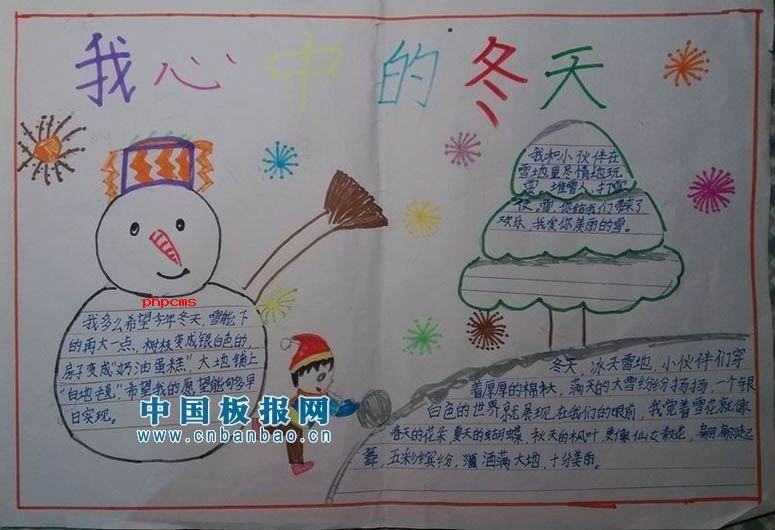 我心中的冬天
我和小伙伴在
雪地里尽情地玩
雪、堆雪人、打雪
仗。雪，你给我们带来了
欢乐，我爱你美丽的雪。
phpcms
我多么希望今年冬天，雪能下
的再大一点、树林变成银白色的，
房子变成“奶油蛋糕”大地铺上
“白地毯”希望我的愿望能够早
日实现。
中国板报网
www.cnbanbao.cn
冬天，冰天雪地，小伙伴们穿
着厚厚的棉袄，满天的大雪纷纷扬扬，一个银
白色的世界就展现在我们的眼前，我觉着雪花就像
春天的花朵，夏天的蝴蝶，秋天的枫叶，更像仙女散花，翩翩起
舞，五彩缤纷，洒满大地，十分美丽。